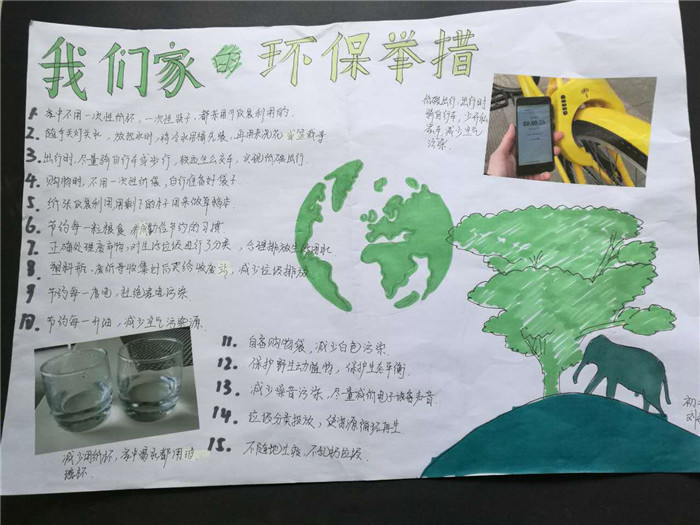 我们家的环保举措
1. 家中不用一次性纸杯,一次性筷子,都等用可以复利用的.
2. 随手关灯关水,放热水时,将冷水用桶先装,再用来浇花
3. 出行时,尽量骑自行车或步行,较远坐公交车,实现低碳出行.
4. 购物时,不用一次性纸袋,自行准备好袋子.
5. 纸张反复利用,用剩下的本子用来做草稿本.
6. 节约每一粒粮食 养成勤俭节约的习惯.
7. 正确处理废弃物,对生活垃圾进行了分类,合理排放生活用水
8. 塑料瓶、废纸等收集好后卖给收废站,减少垃圾排放
9 节约每一度电,杜绝光电污染
10. 节约每一升油,减少空气污染源.
低碳出行:出行时
骑自行车,少开私
家车,减少空气
污染.
11. 自备购物袋,减少白色污染.
12. 保护野生动植物,保护生态平衡.
13. 减少噪音污染,尽量减低电子设备声音.
14. 垃圾分类投放,使资源循环再生
15. 不随地吐痰,不乱扔垃圾.
减少用纸杯,家中喝水都用玻
璃杯.
初